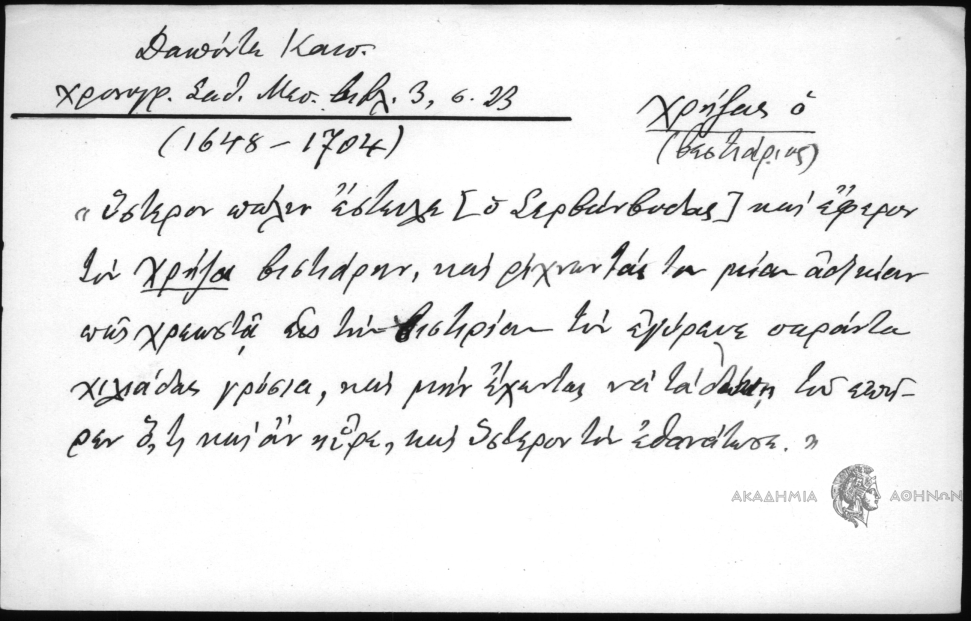 Δαπόντε Καισ.
χρονογρ. Σαθ. Μεσ. Βιβλ. 3, σ. 23
(1648 - 1704)
Χρήζας ὁ
(βεστιάριος)
"ὕστερον πάλιν ἔστειλε [ὁ Σερβάνβοδας] καὶ ἔφερον
τὸν Χρήζα βιστιάρην, καὶ ρίχνωντάς του μίαν ἀδικίαν
πῶς χρεωστᾷ εἰς τὴν βιστερίαν τὸν ἐγύρευε σαράντα
χιλιάδας γρόσια, καὶ μὴν ἔχωντας νὰ τὰ δώσῃ τοῦ ἐπῆ-
ρεν ὅ,τι καὶ ἂν ηὗρε, καὶ ὕστερον τὸν ἐθανάτωσε."
ΑΚΑΔΗΜΙΑ ΑΘΗΝΩΝ